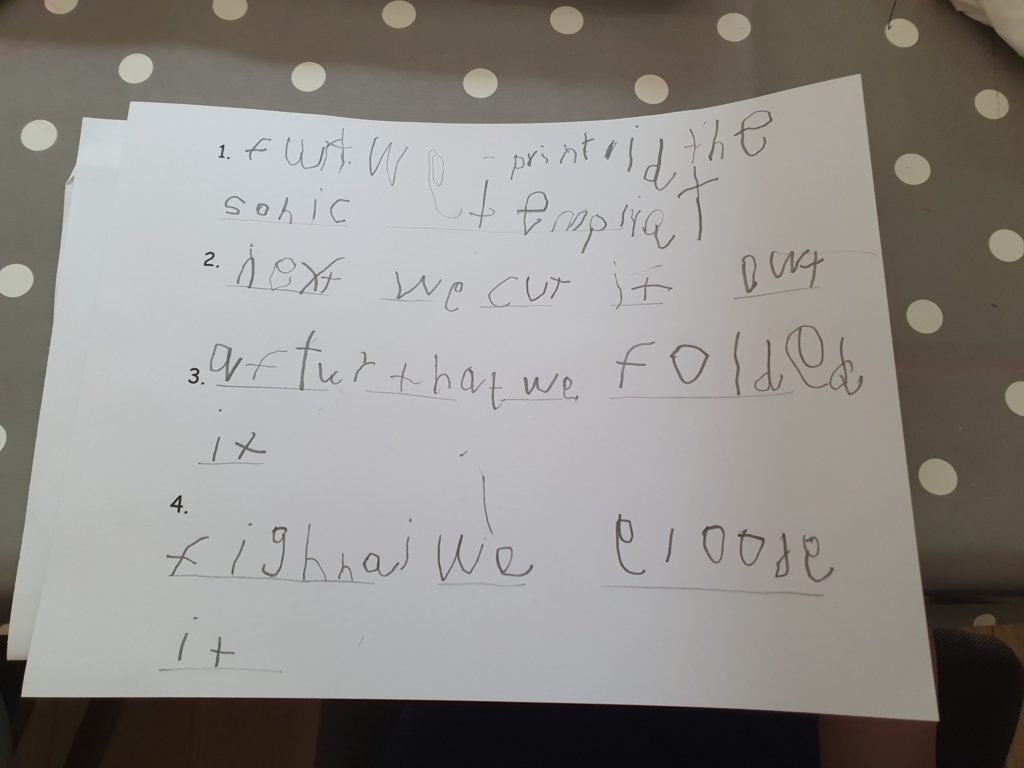 1. furt. We printrid the
sonic templiat
2. next we cut it out
3. arftur that we folded
it
4.
fighnal we gloose
it